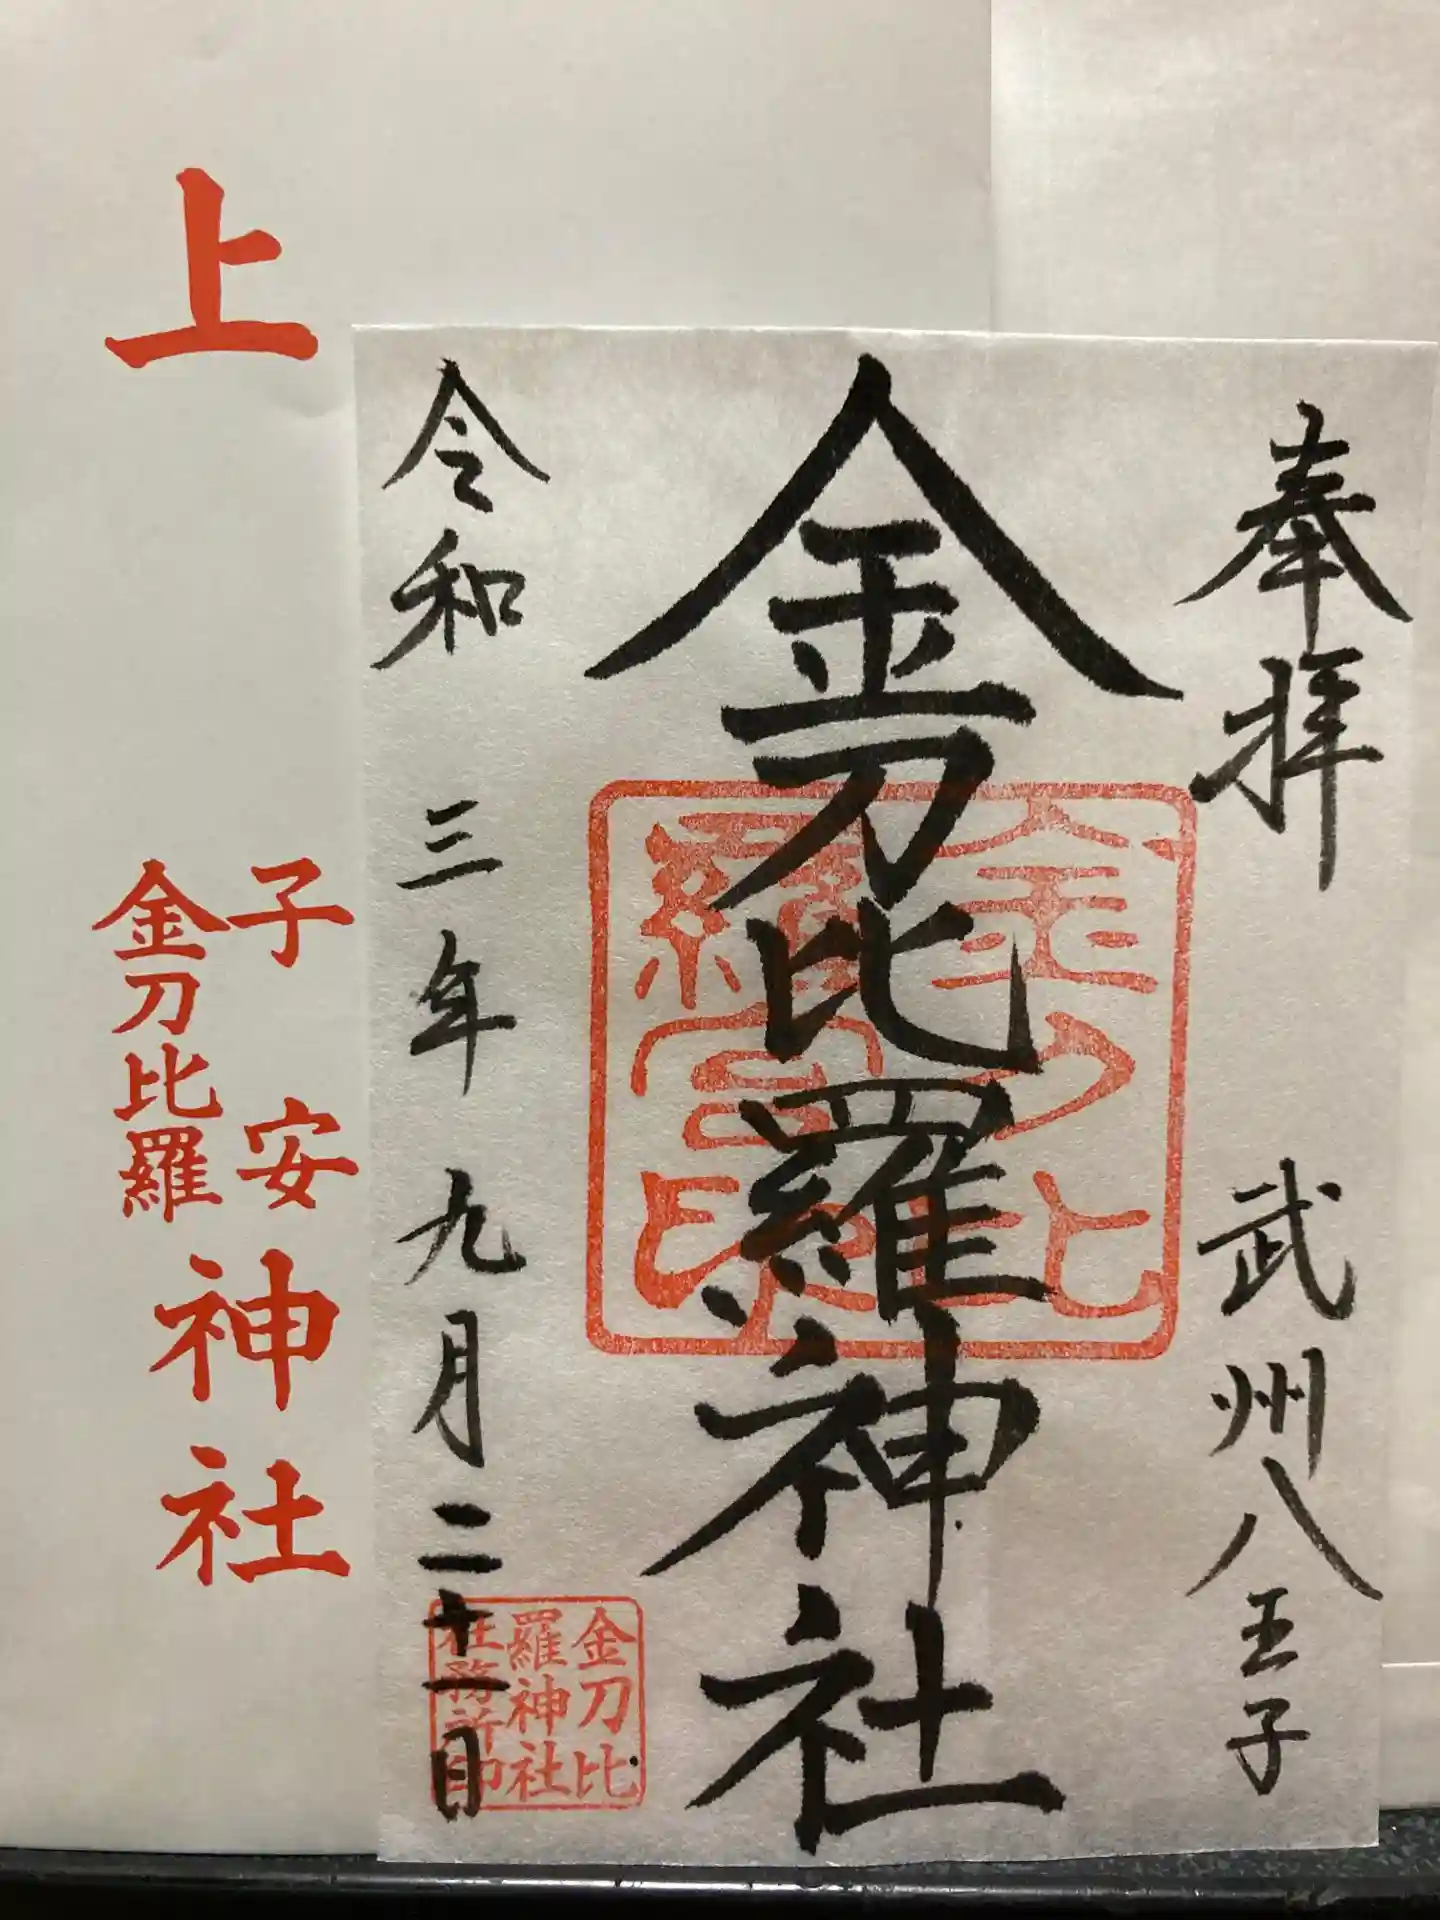 奉拝
武州八王子
金刀比羅神社
金刀比
羅宮印
令和三年九月二十一日
金刀比
羅神社
社務所印
上
子安
金刀比羅
神社